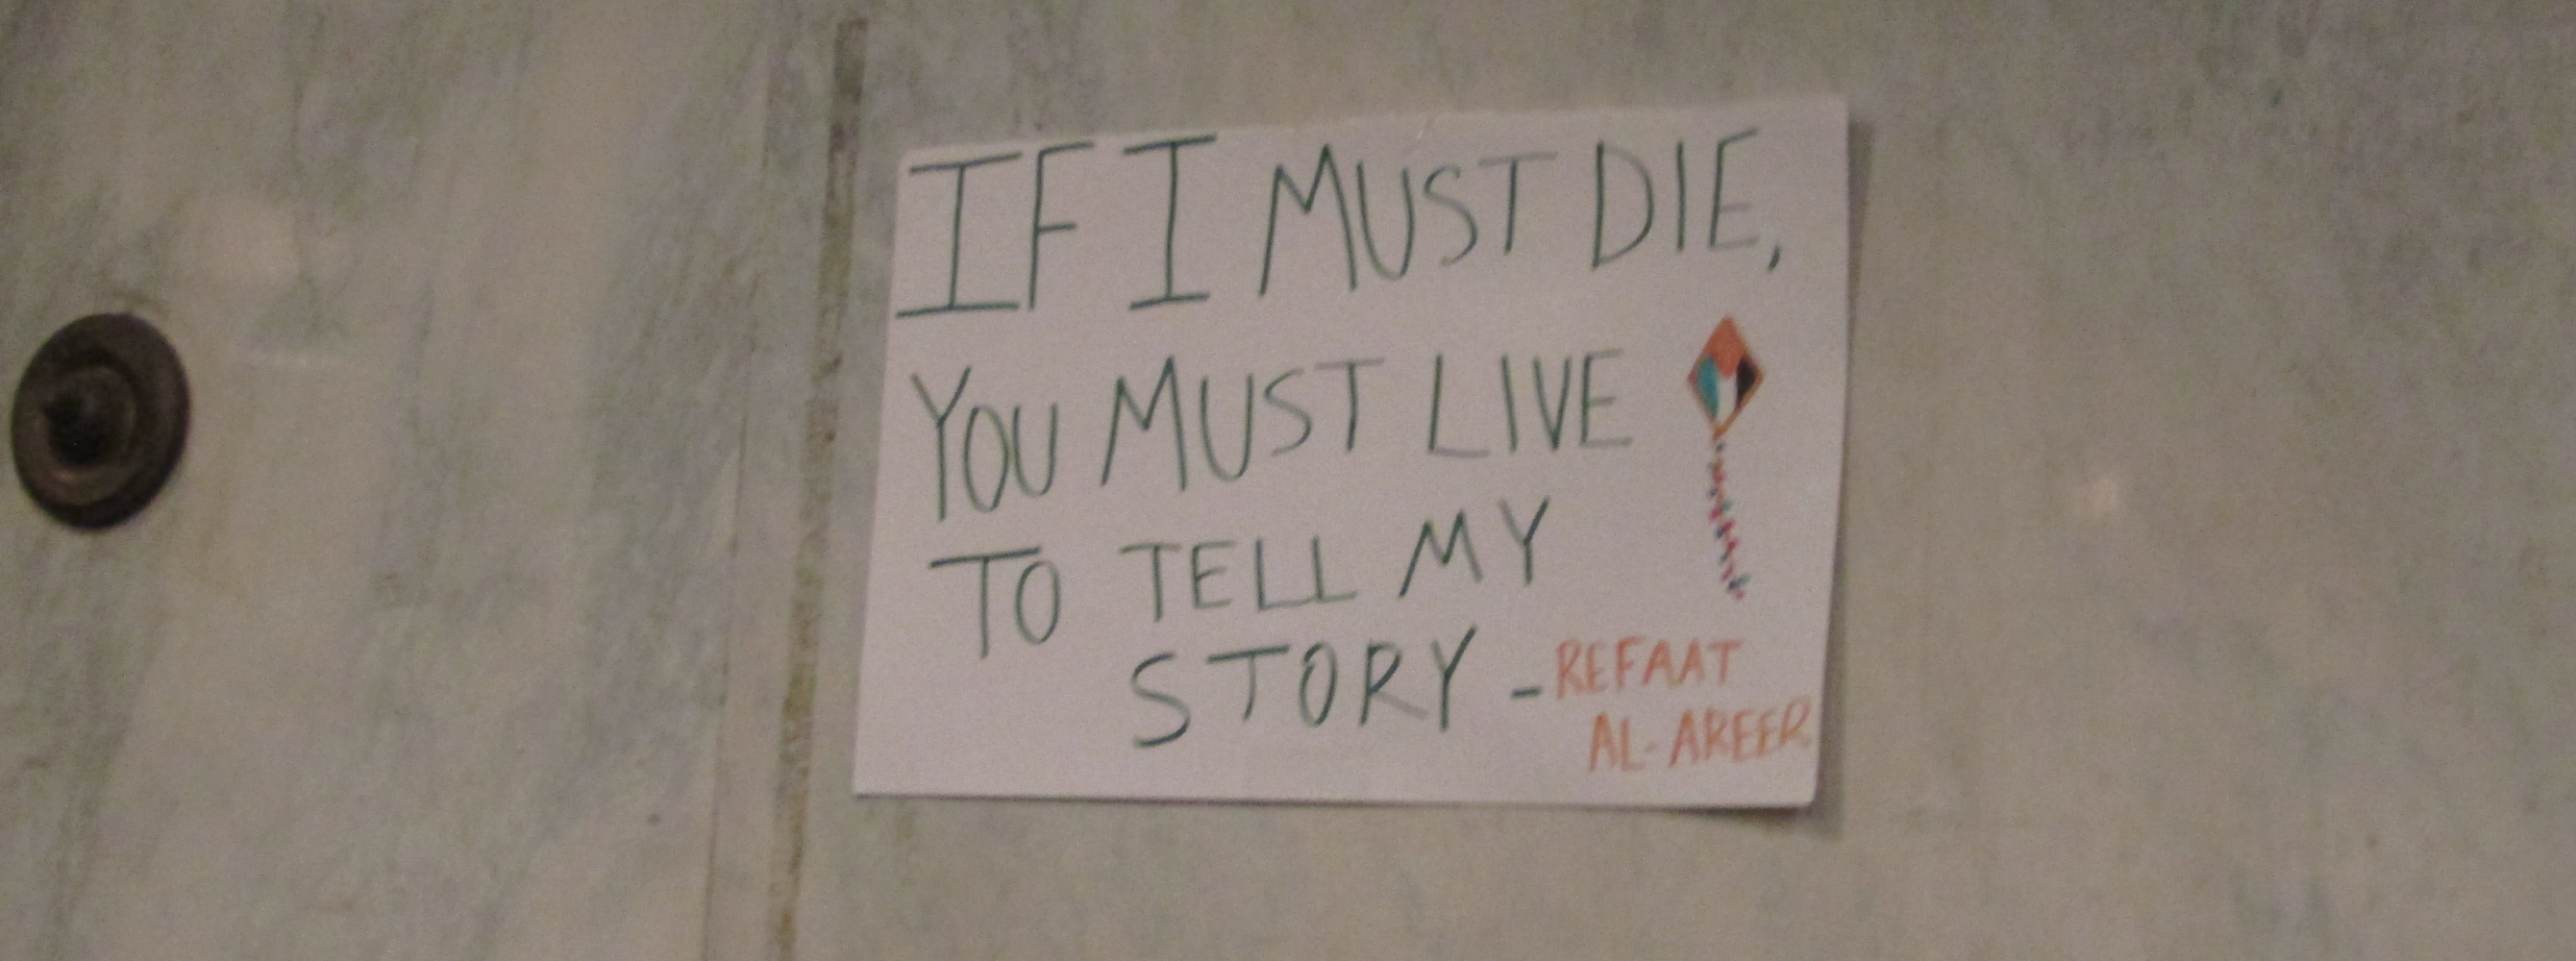 IF I MUST DIE,
YOU MUST LIVE
TO TELL MY
STORY - REFAAT
AL-AREER